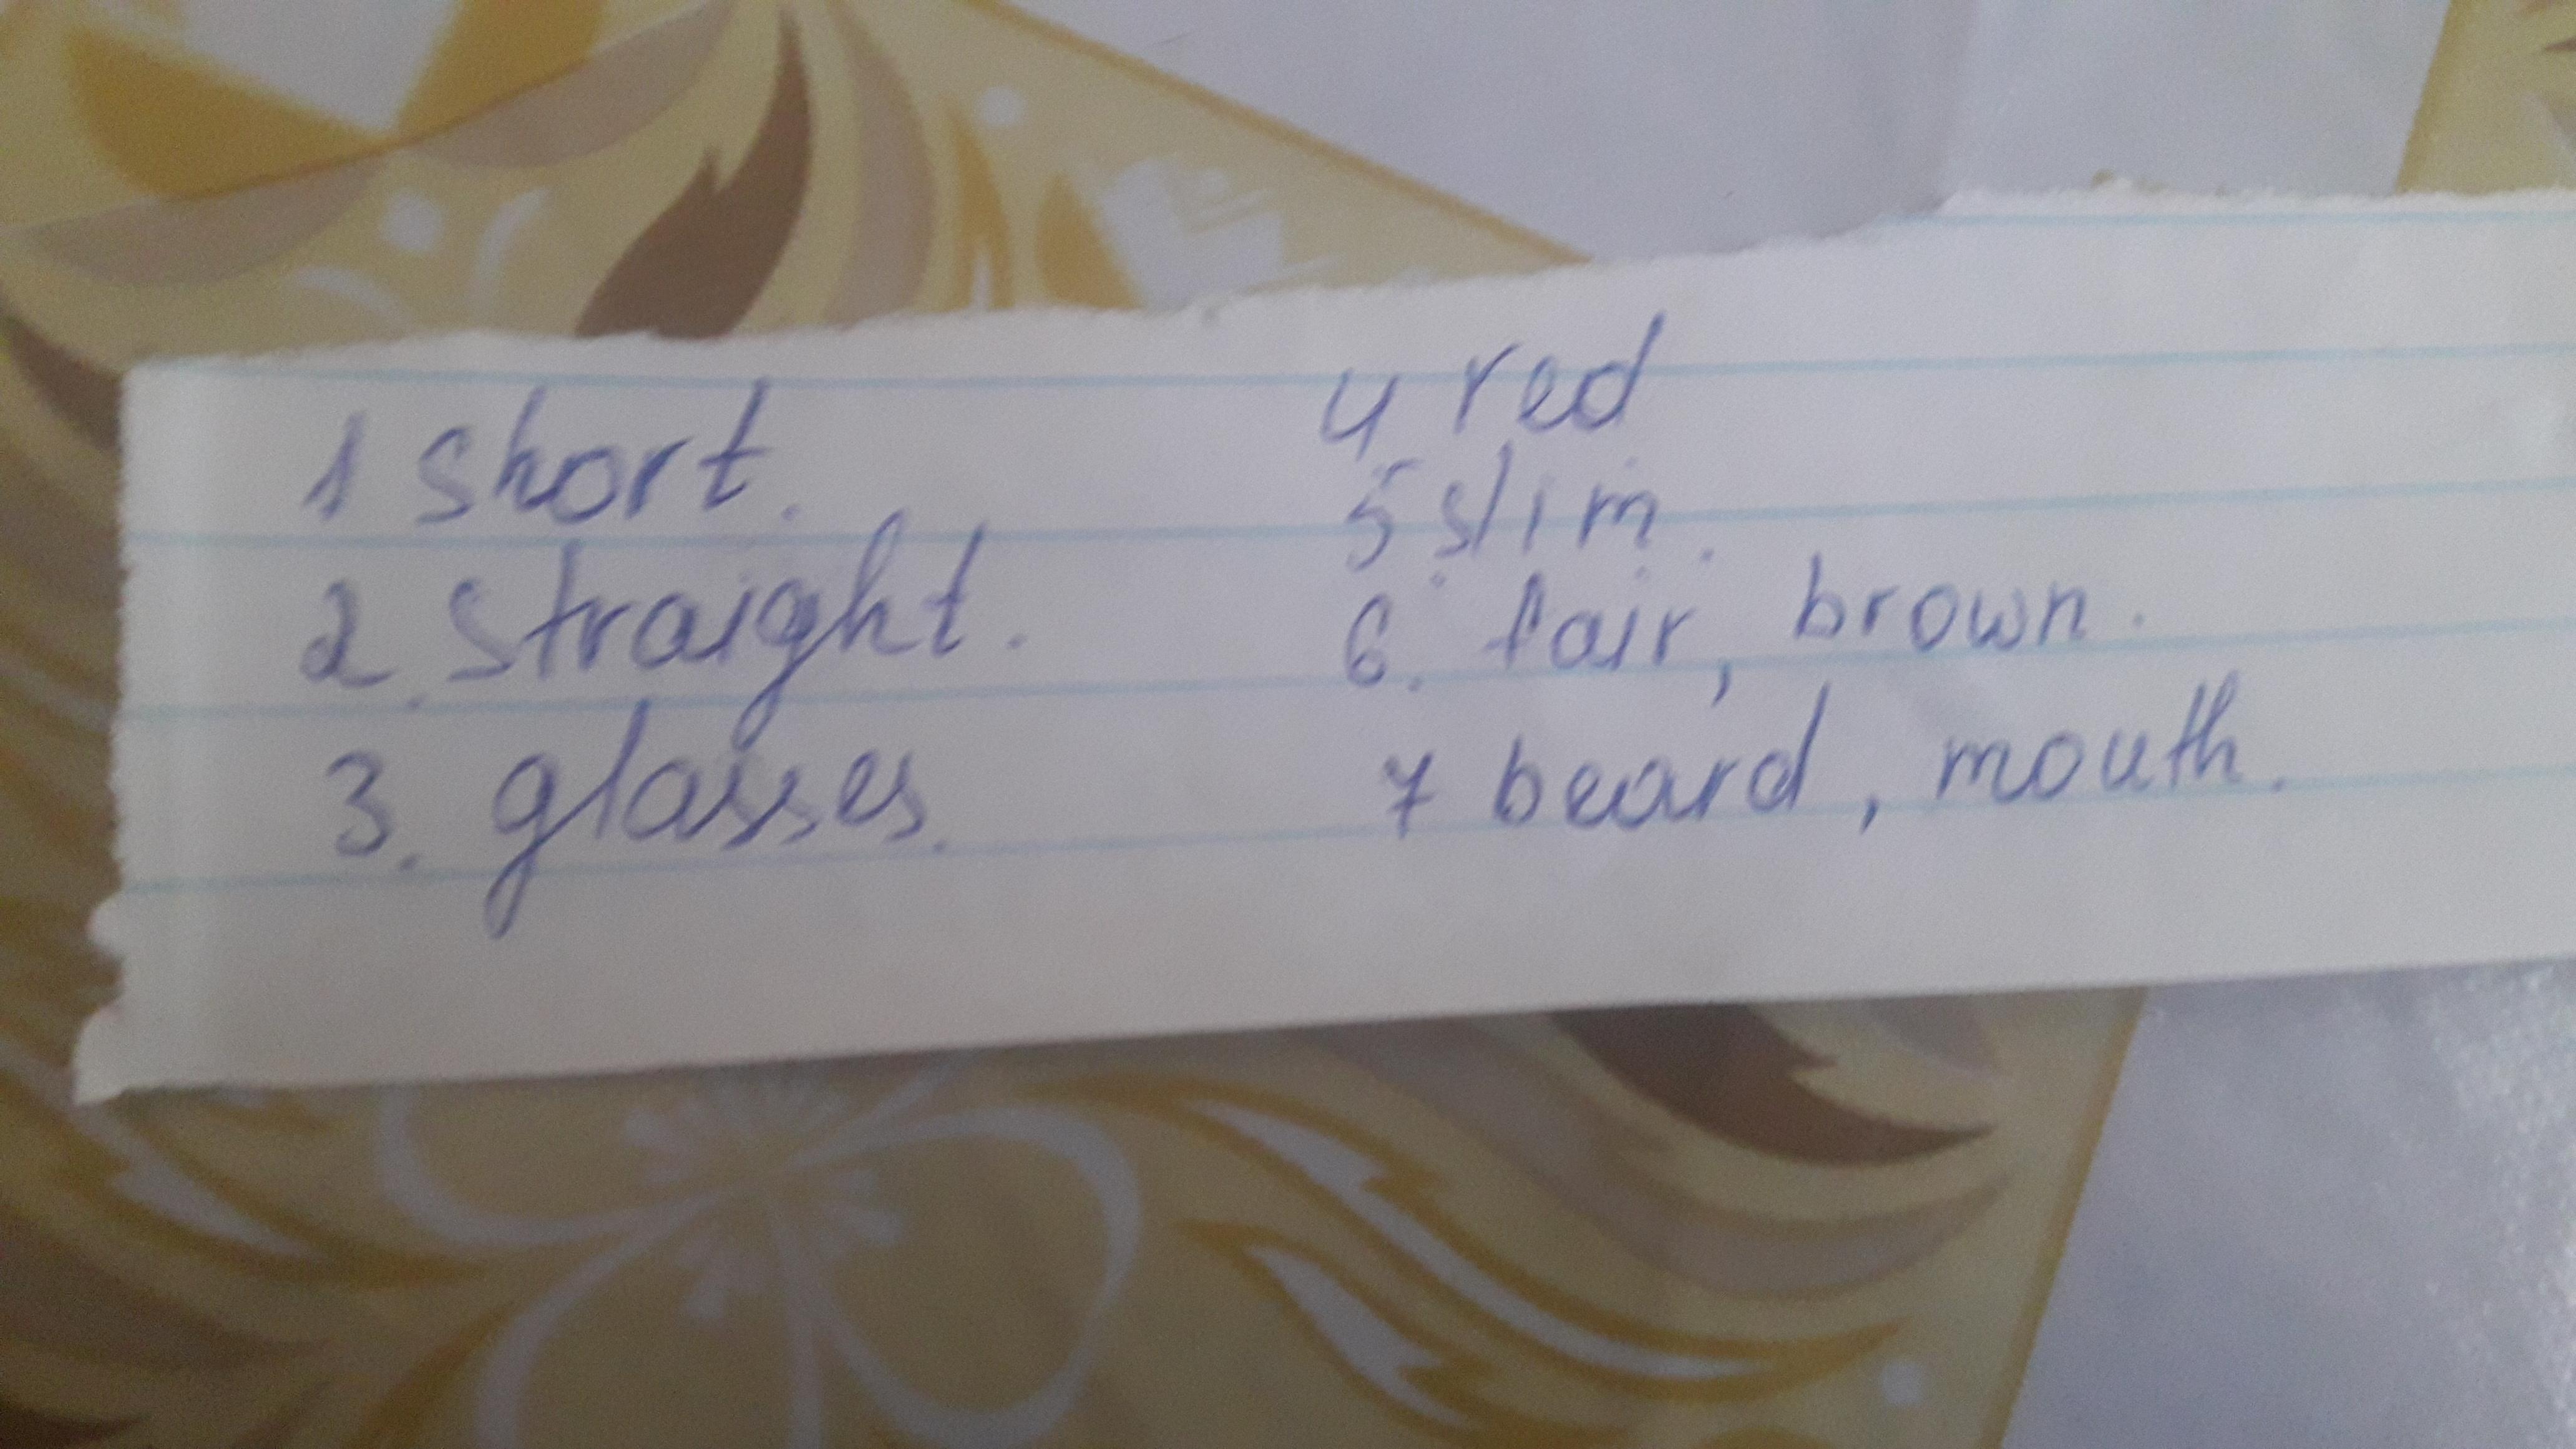 1 short.
2. straight.
3. glasses.
4 red
5 slim.
6. fair, brown.
7 beard, mouth.